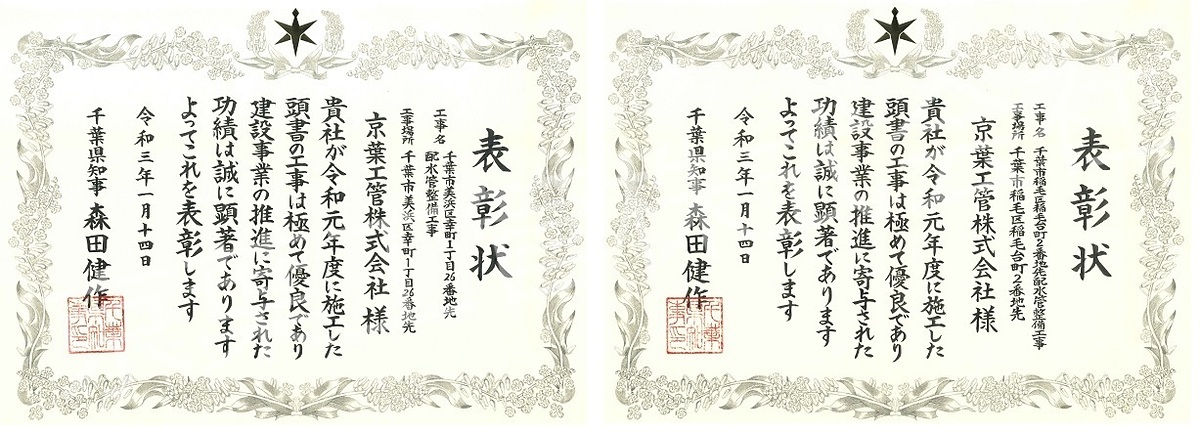 表彰状
工事名 千葉市美浜区幸町1丁目26番地先
配水管整備工事
工事場所 千葉市美浜区幸町1丁目26番地先
京葉工管株式会社 様
貴社が令和元年度に施工した
頭書の工事は極めて優良であり
建設事業の推進に寄与された
功績は誠に顕著であります
よってこれを表彰します
令和三年一月十四日
千葉県知事 森田健作
表彰状
工事名 千葉市稲毛区稲毛台町2番地先配水管整備工事
工事場所 千葉市稲毛区稲毛台町2番地先
京葉工管株式会社 様
貴社が令和元年度に施工した
頭書の工事は極めて優良であり
建設事業の推進に寄与された
功績は誠に顕著であります
よってこれを表彰します
令和三年一月十四日
千葉県知事 森田健作